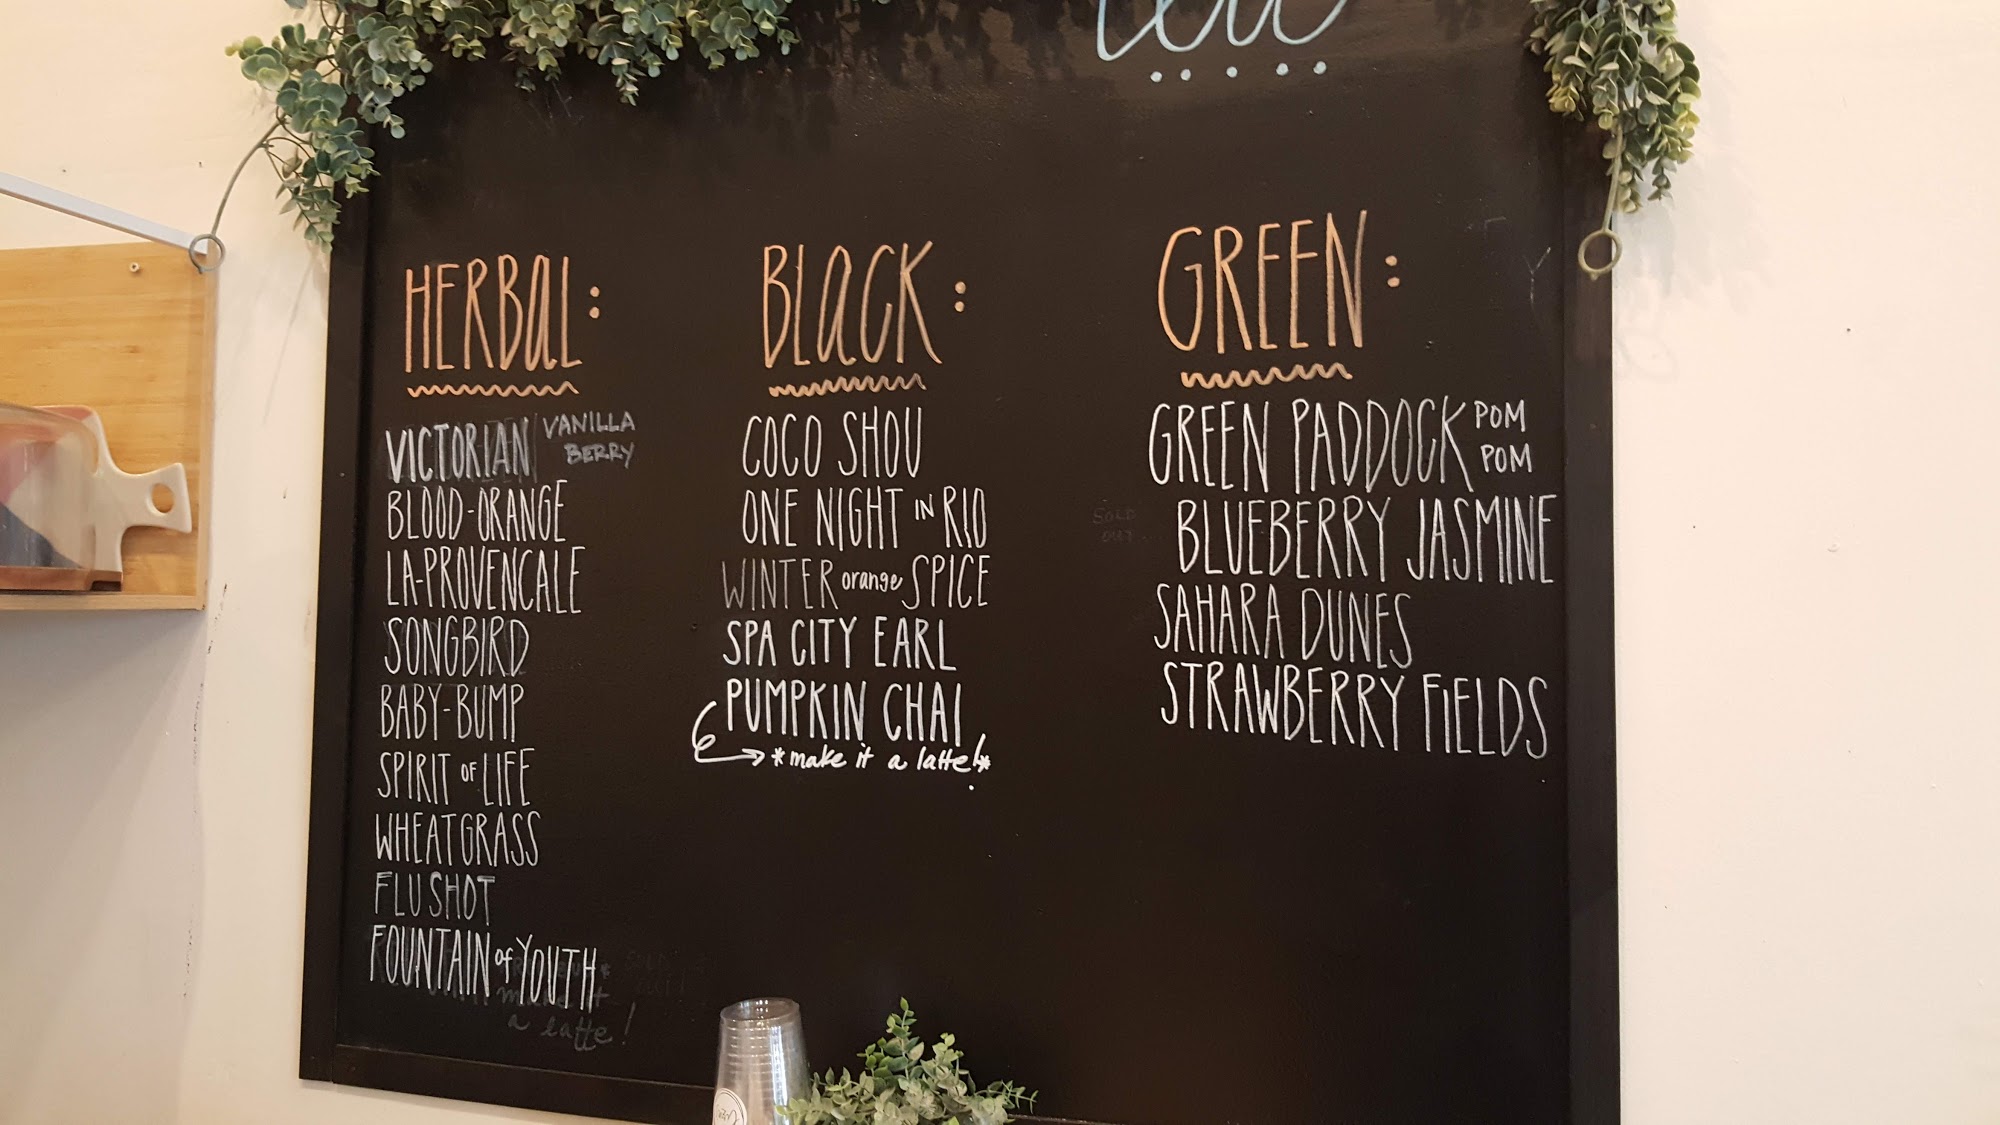 HERBAL:
VICTORIAN VANILLA
BERRY
BLOOD-ORANGE
LA-PROVENCALE
SONGBIRD
BABY-BUMP
SPIRIT OF LIFE
WHEATGRASS
FLU SHOT
FOUNTAIN of YOUTH
make it
a latte!
BLACK:
COCO SHOU
ONE NIGHT IN RIO
WINTER orange SPICE
SPA CITY EARL
PUMPKIN CHAI
*make it a latte!*
GREEN:
GREEN PADDOCK POM
POM
SOLD
OUT...
BLUEBERRY JASMINE
SAHARA DUNES
STRAWBERRY FIELDS